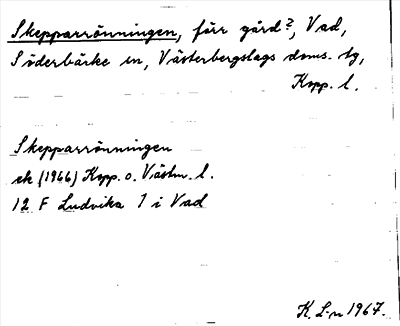 Skepparrönningen, förr gård?, Vad,
Söderbärke sn, Västerbergslags doms. tg,
Kopp. l.
Skepparrönningen
ek (1966) Kopp. o. Västm. l.
12 F Ludvika 1 i Vad
K. L-n 1967.